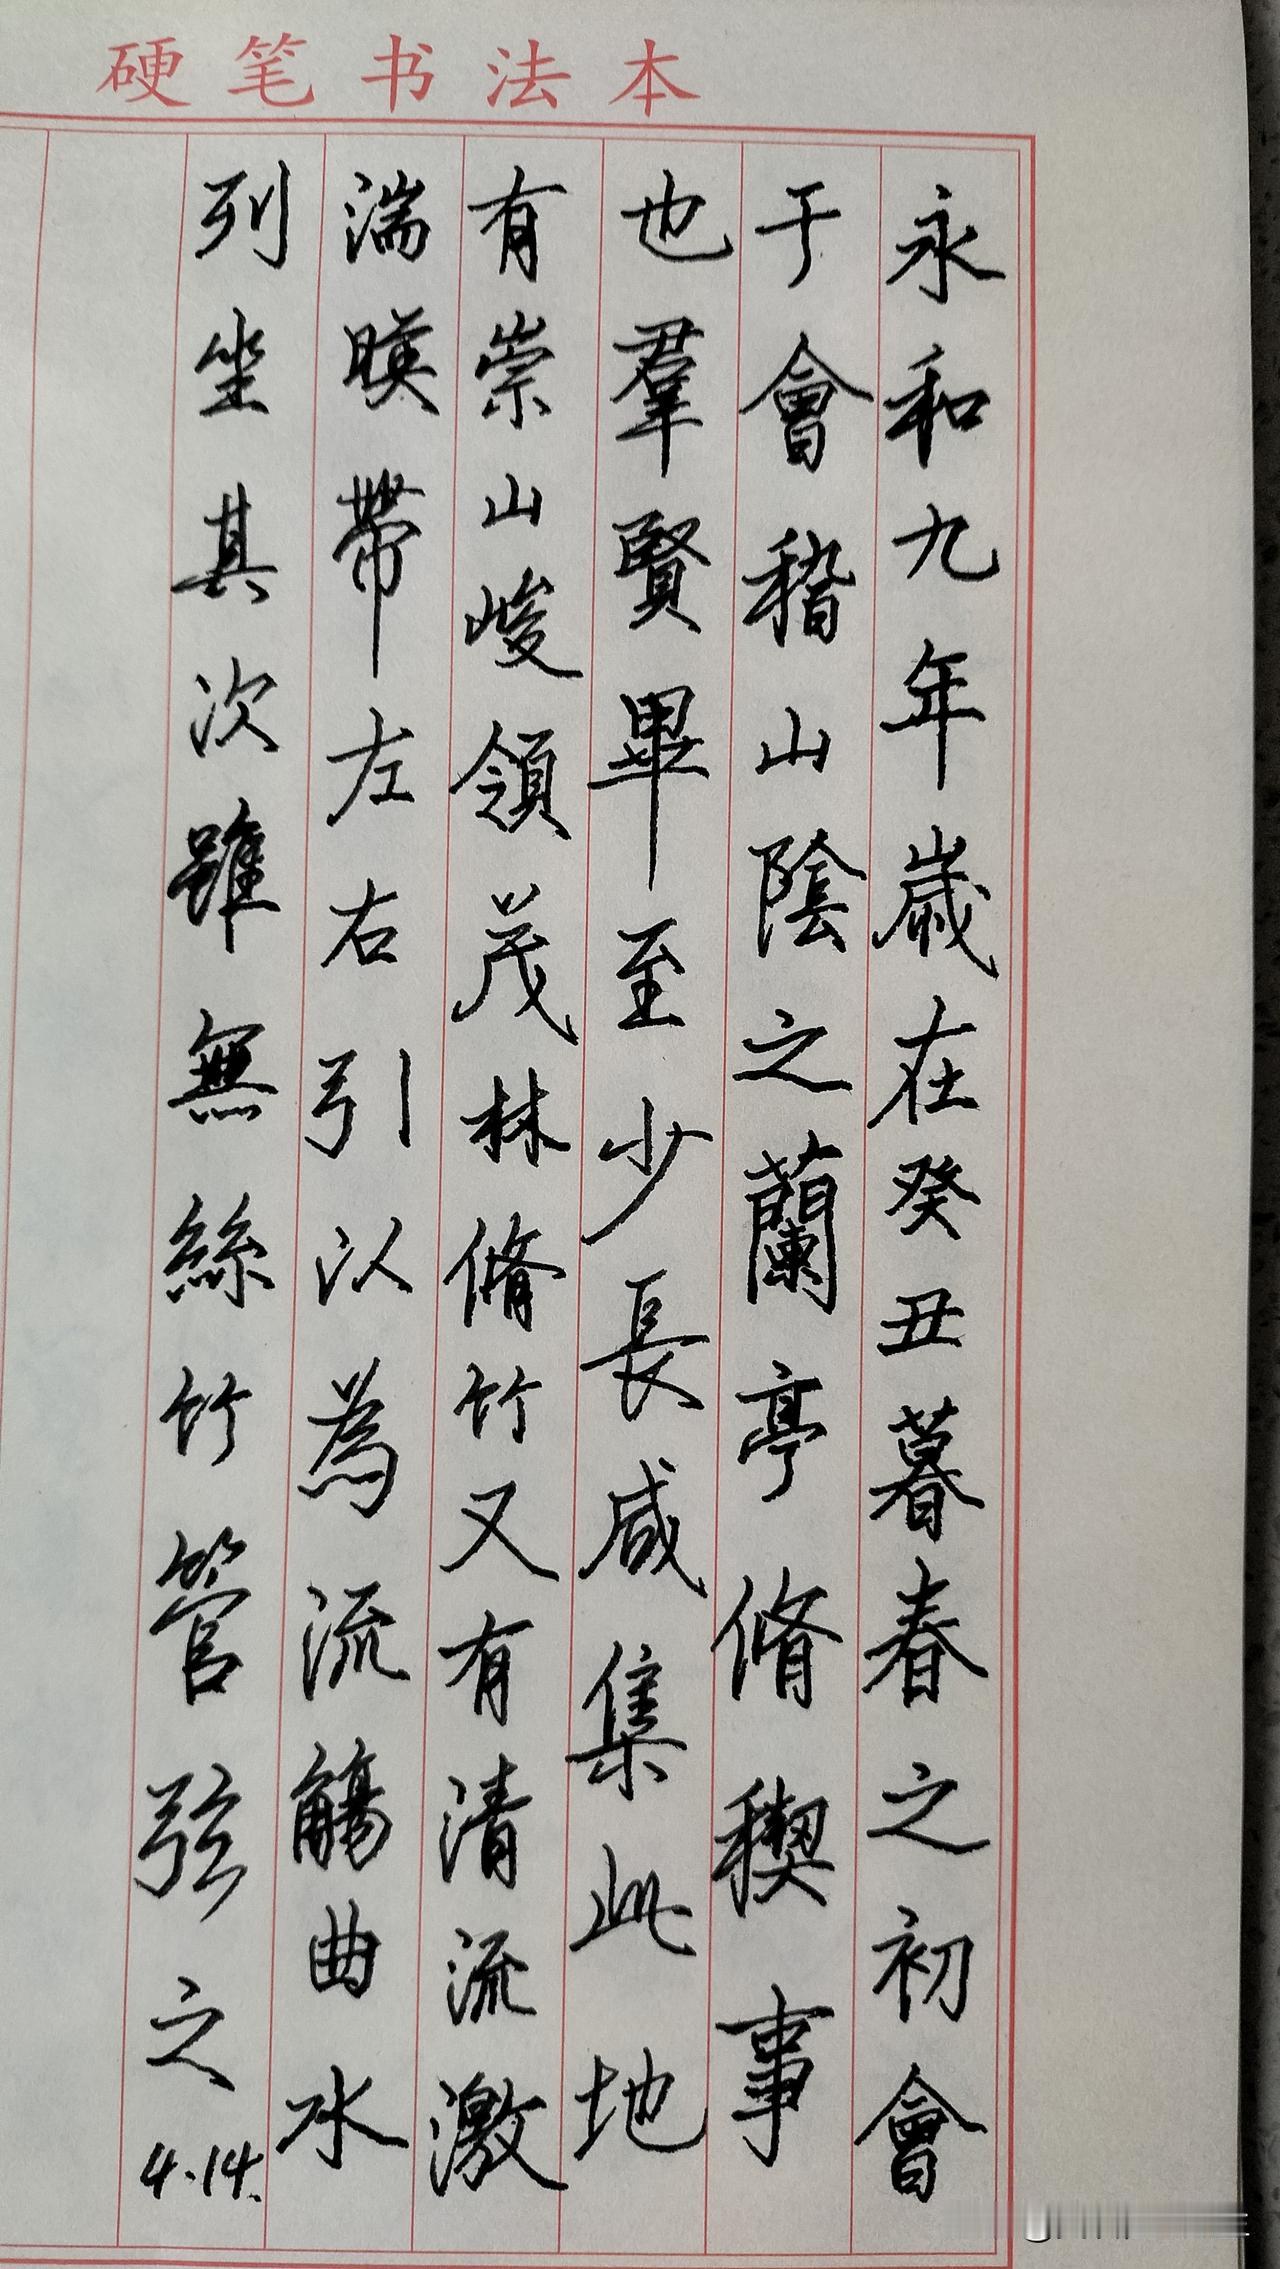 硬笔书法本
永和九年歲在癸丑暮春之初會
于會稽山陰之蘭亭脩稧事
也羣賢畢至少長咸集此地
有崇山峻領茂林脩竹又有清流激
湍暎帶左右引以為流觴曲水
列坐其次雖無絲竹管弦之
4.14.